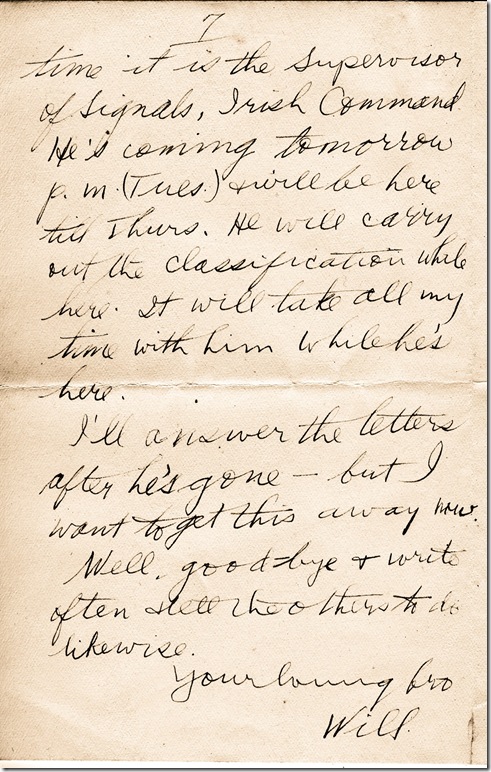 7
time it is the Supervisor
of Signals, Irish Command
He's coming tomorrow
p.m. (Tues.) & will be here
till Thurs. He will carry
out the classification while
here. It will take all my
time with him while he's
here.
I'll answer the letters
after he's gone – but I
want to get this away now.
Well, good-bye & write
often & tell the others to do
likewise.
Your loving bro
Will.